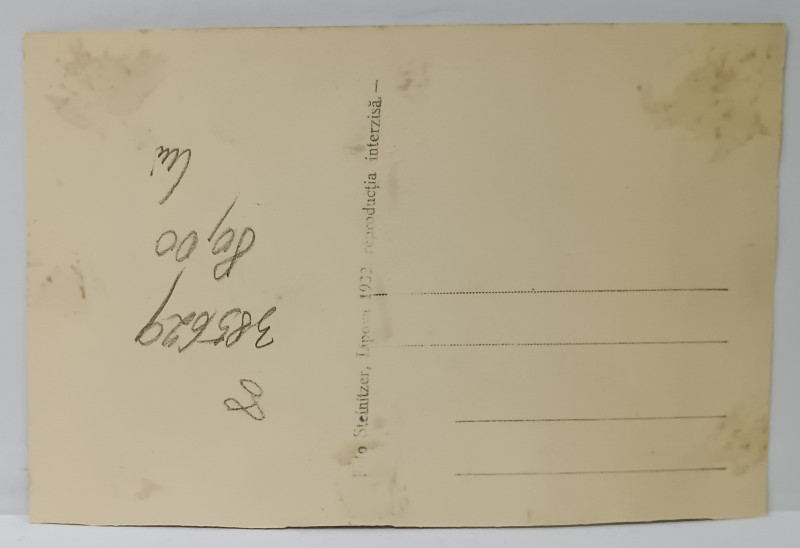 Steinitzer, Lipova 1933 reproducția interzisă.—
lei
80,00
385629
08